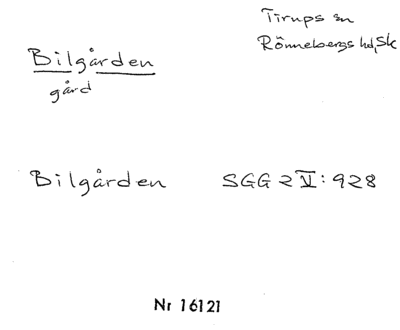 Tirups sn
Rönnebergs hd, Sk
Bilgården
gård
Bilgården SGG 2 V: 928
Nr 16121